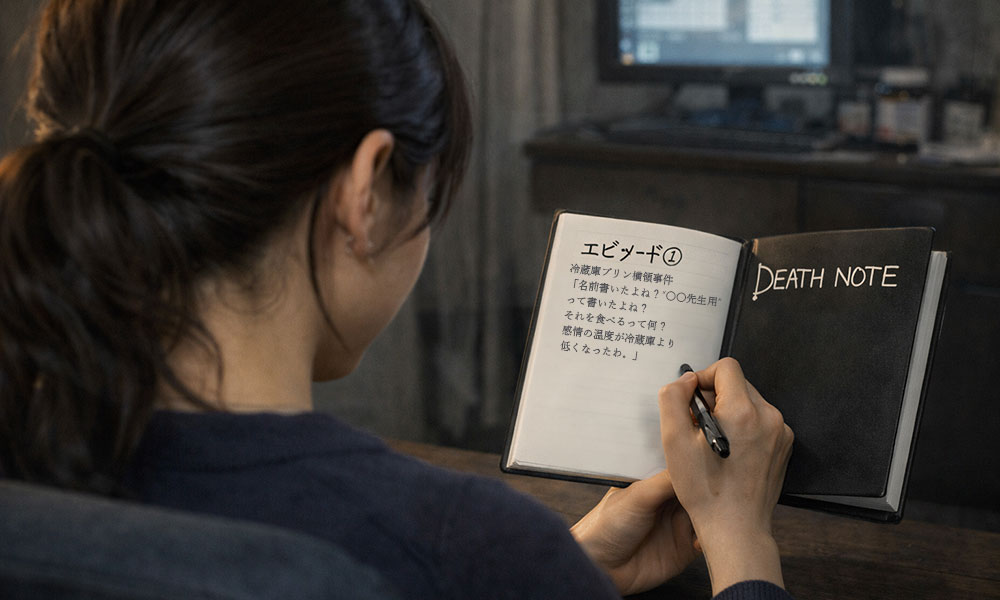 エピソード①
冷蔵庫プリン横領事件
「名前書いたよね？“〇〇先生用”
って書いたよね？
それを食べるって何？
感情の温度が冷蔵庫より
低くなったわ。」
DEATH NOTE